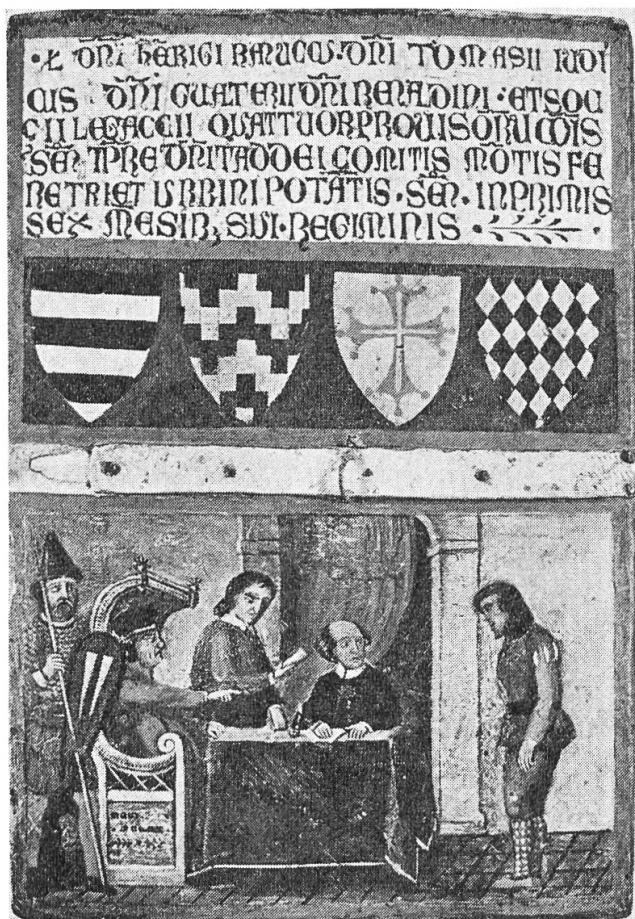 ·Ƚ DN̄I HERIGI RANUCCII·DN̄I TOMASII IUDI
CIS DN̄I GUATERII DN̄I RENADINI·ET SOÇ
ÇII LEGACCII QUATTUOR PROUISORU COĪS
SEN̄·TPRE DN̄I TADDEI COMITIS MŌTIS FE
RETRI ET URBINI POTĀTIS·SEN̄·IN PRIMIS
SEX MESIB, SUI·REGIMINIS·